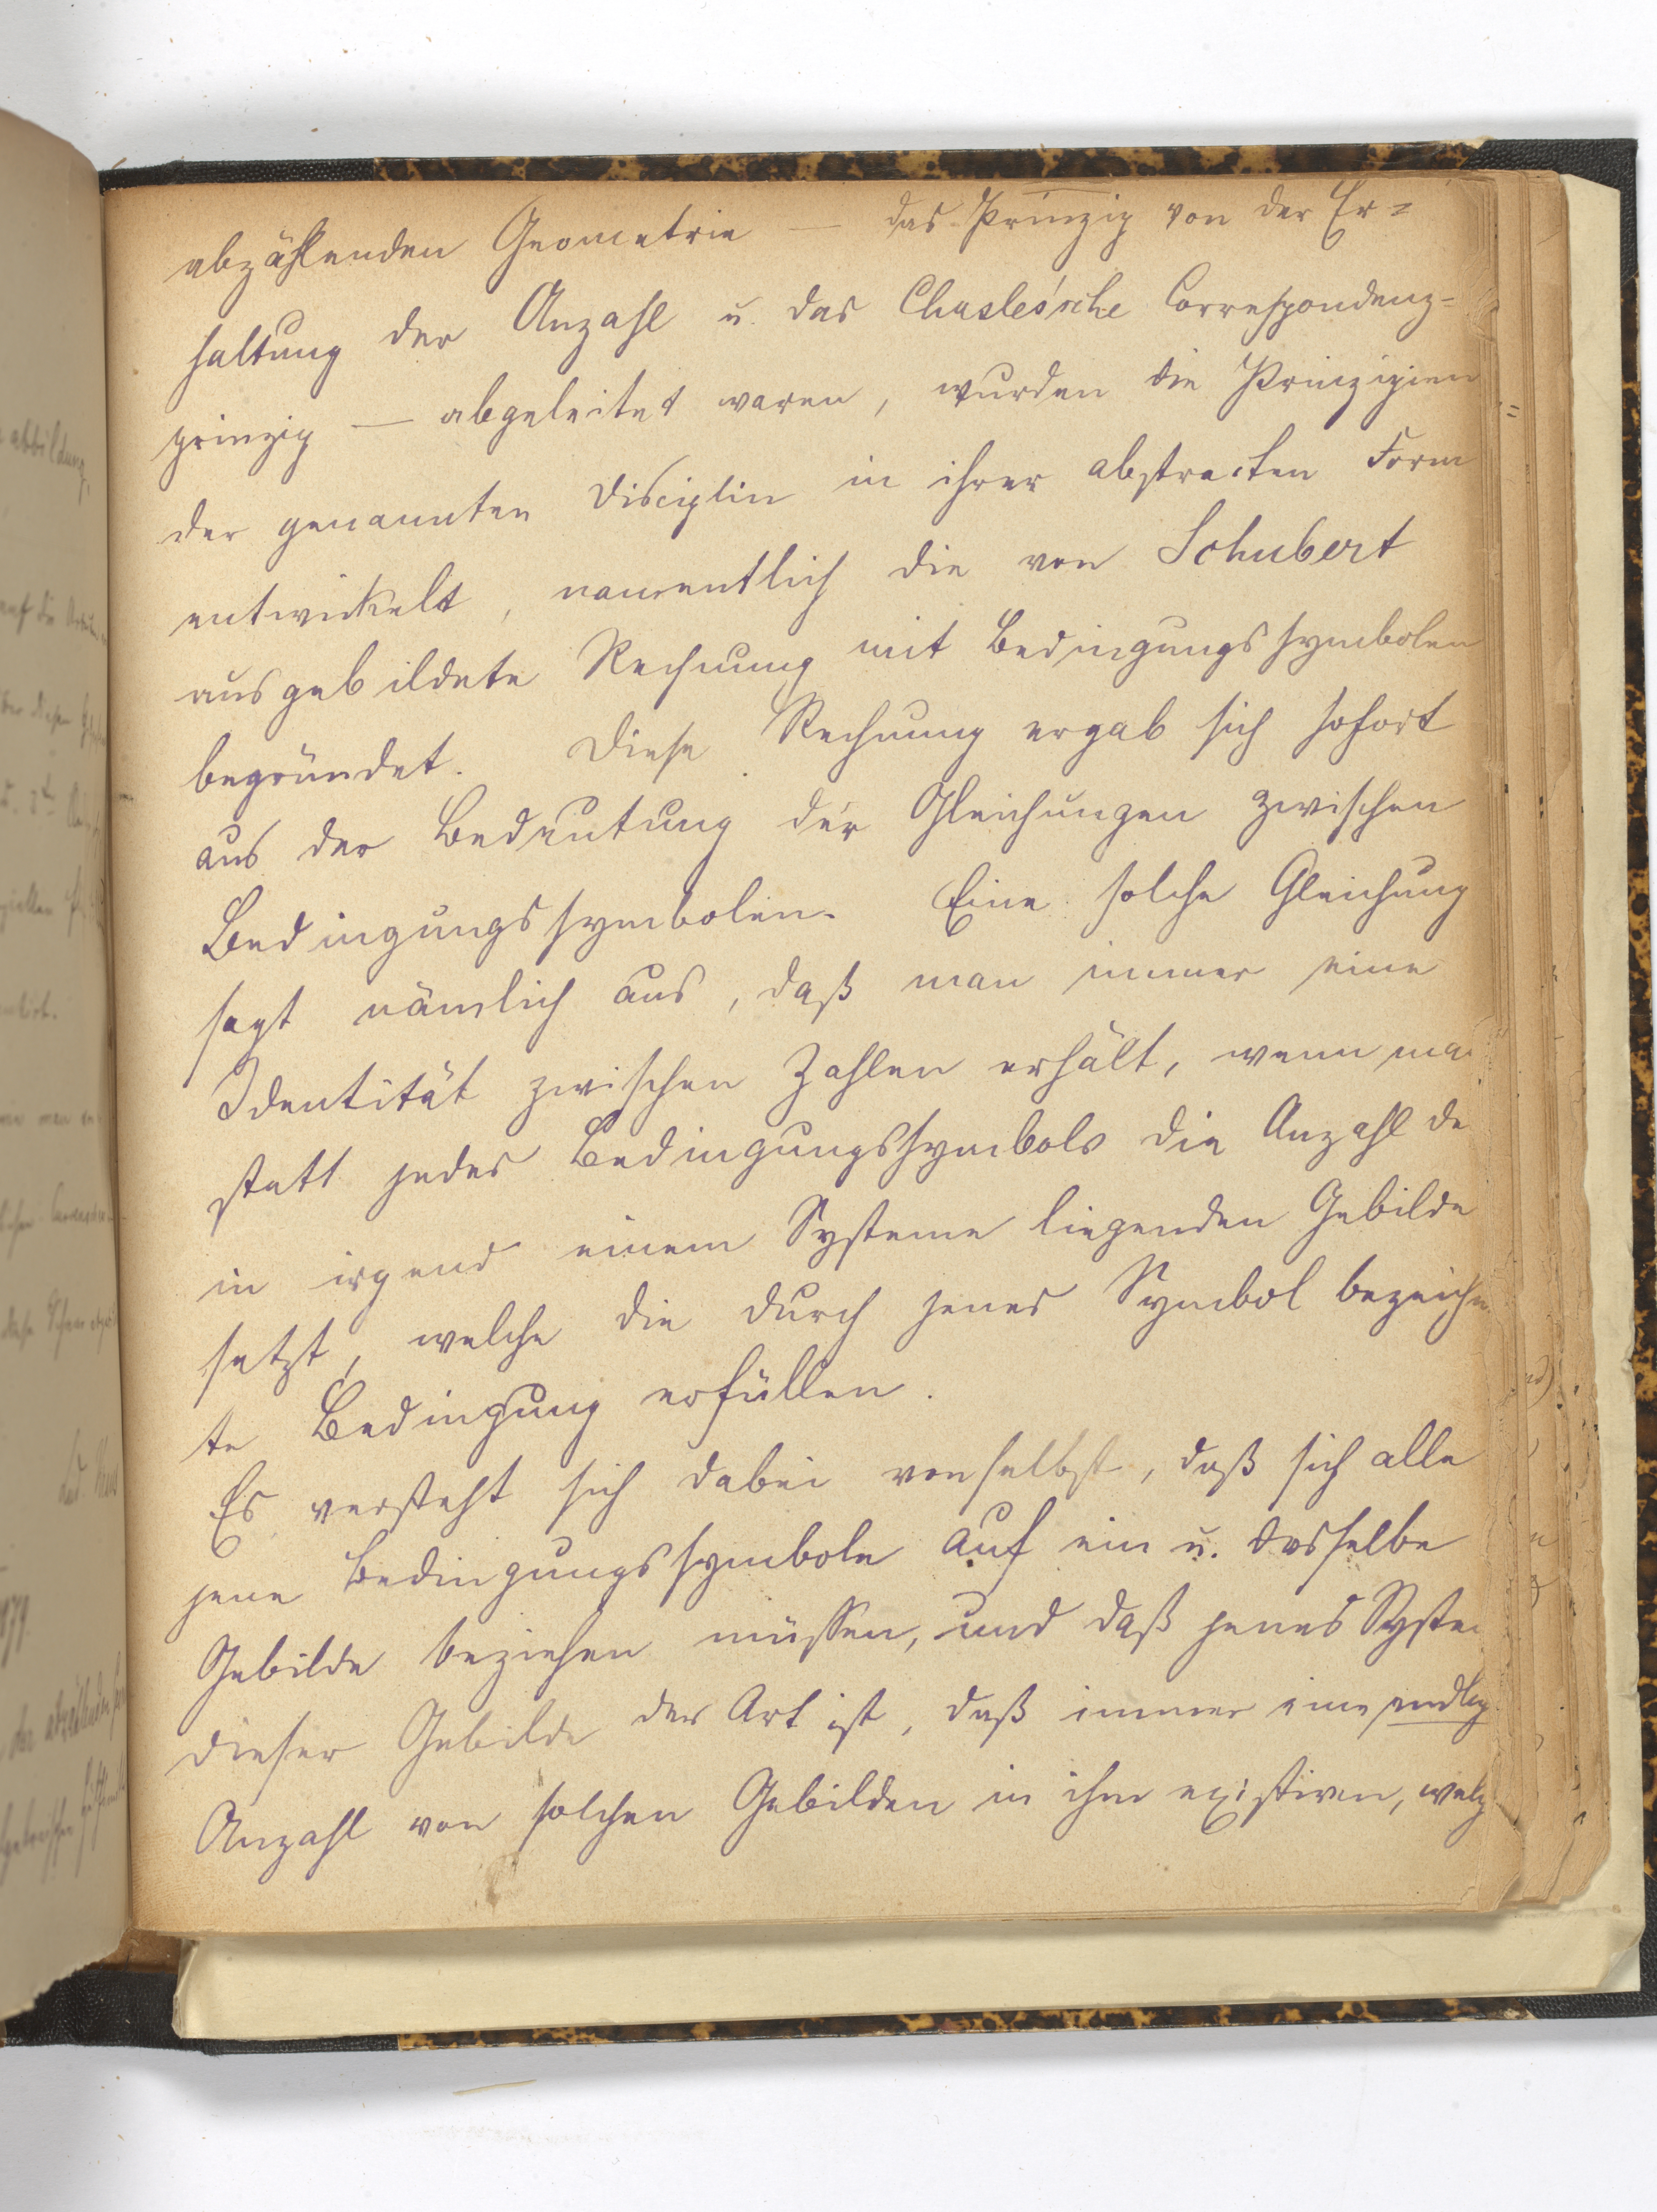 abzählenden Geometrie — das Prinzip von der Er=
haltung der Anzahl u. das Chasles'sche Correspondenz=
prinzip — abgeleitet waren, wurden die Prinzipien
der genannten Disciplin in ihrer abstracten Form
entwickelt, namentlich die von Schubert
ausgebildete Rechnung mit Bedingungssymbolen
begründet. Diese Rechnung ergab sich sofort
aus der Bedeutung der Gleichungen zwischen
Bedingungssymbolen. Eine solche Gleichung
sagt nämlich aus, daß man immer eine
Identität zwischen Zahlen erhält, wenn ma
statt jedes Bedingungssymbols die Anzahl de
in irgend einem Systeme liegenden Gebilde
setzt, welche die durch jenes Symbol bezeichn
te Bedingung erfüllen.
Es versteht sich dabei von selbst, daß sich alle
jene Bedingungssymbole auf ein u. dasselbe
Gebilde beziehen müssen, und daß jenes Syste
dieser Gebilde der Art ist, daß immer eine endlig
Anzahl von solchen Gebilden in ihm existiren, welch